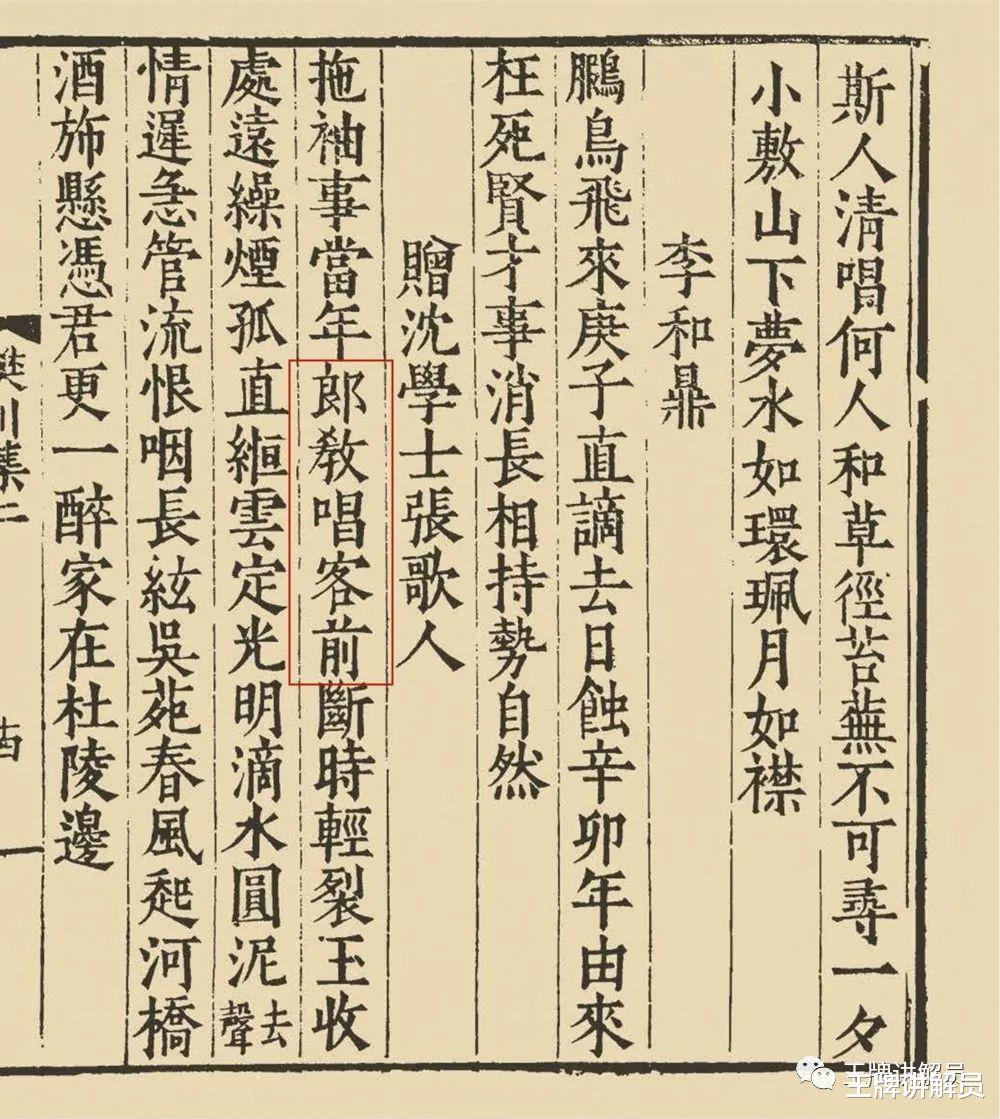 斯人清唱何人和草徑苔蕪不可尋一夕
小敷山下夢水如環珮月如襟
李和鼎
鵩鳥飛來庚子直謫去日蝕辛卯年由來
枉死賢才事消長相持勢自然
贈沈學士張歌人
拖袖事當年郎教唱客前斷時輕裂玉收
處遠繰煙孤直緪雲定光明滴水圓泥去聲
情遲急管流恨咽長絃吳苑春風起河橋
酒斾懸憑君更一醉家在杜陵邊
樊川集二
王牌讲解员
王牌讲解员